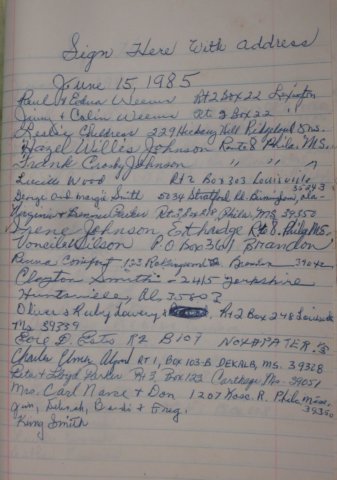 Sign Here With Address
June 15, 1985
Paul & Edna Weems Rt 2 Box 22 Lexington
Jimmy & Colin Weems Rt 2 Box 22 "
Leslie Childress 229 Hickory Hill Ridgeland Ms.
Hazel Willis Johnson Route 8 Phila. MS.
Frank Crosby Johnson " " "
Lucille Wood Rt 2 Box 303 Louisville
George and Margie Smith 5034 Stratford Rd. Birmingham, Ala- 35243
Virginia & Parker Rt 3 Box Phila. MS 39350
Irene Johnson, Ethridge Rt 8. Phila MS.
Voncile Wilson P O Box 3691 Brandon
Comfort 123 Brandon 39042
Clayton Smith - 2415 Yorkshire
Huntsville, Al. 35803
Oliver & Ruby Lowery Rt 2 Box 248 Louisville
Ms 39339
D. R2 B107 NOXPATER. Ms
Charles Elmer RT 1, BOX 103-B DEKALB, MS. 39328
& Lloyd Parker Rt 3 Box 122 Carthage Ms- 39051
Mrs. Carl Nance & Don 1207 Kosc. R. Phila Miss. 39350
Deborah, & Greg.
King Smith